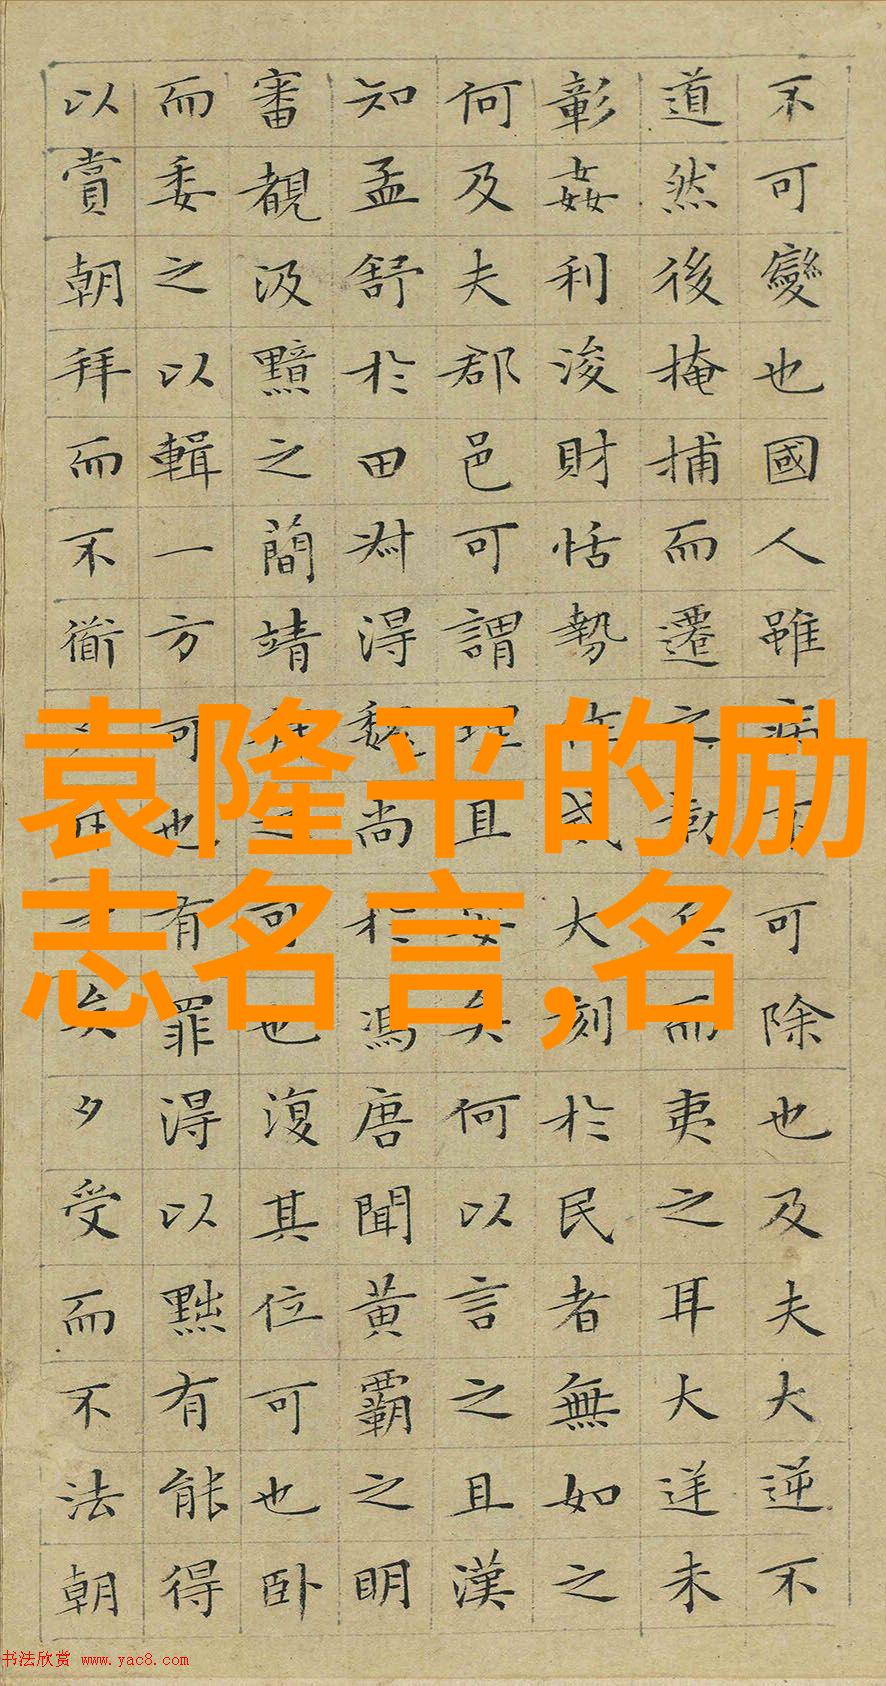 不可變也國人雖病可除也及夫大逆不
道然後掩捕而遷之勒兵而夷之耳大逆未
彰姦利浚財恬勢作威大刻於民者無如之
何及夫郡邑可謂理且安矣何以言之且漢
知孟舒於田叔得魏尚於馮唐聞黃霸之明
審覩汲黯之簡靖拜之可也復其位可也卧
而委之以輯一方可也有罪得以黜有能得
以賞朝拜而不衟矣夕受而不法朝
袁隆平的励
志名言,名
书法欣赏 www.yac8.com